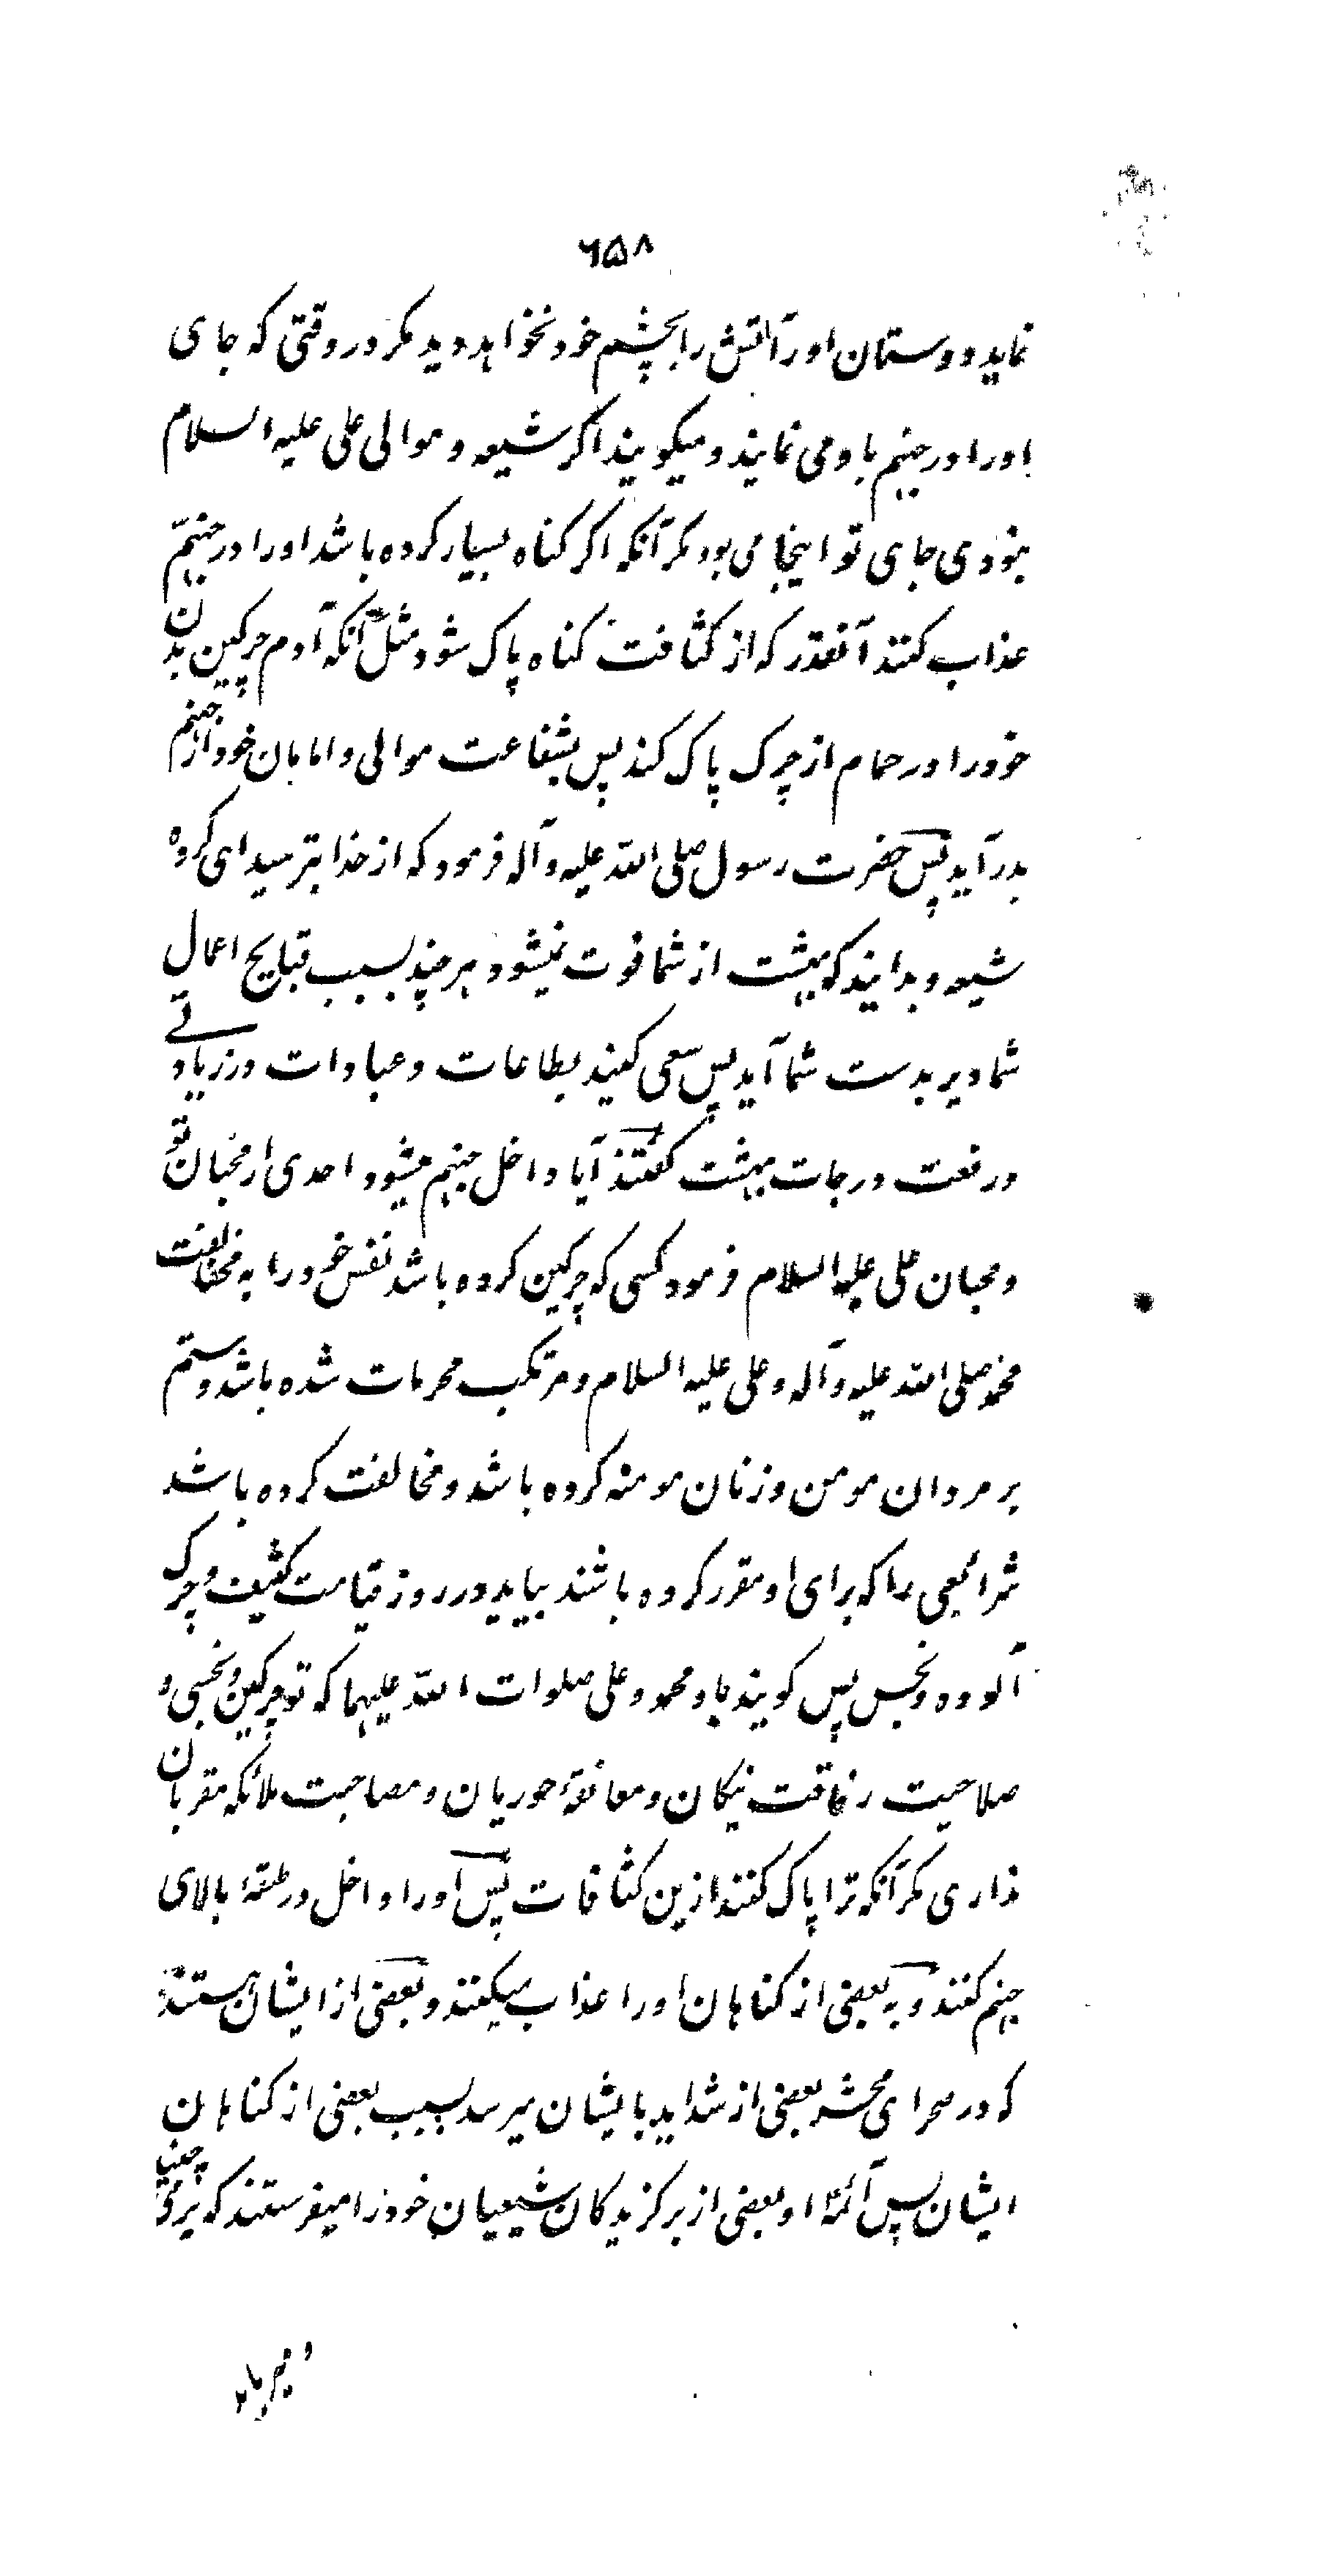 ۶۵۸
نماید و دوستان او را آتش را بچشم خود نخواهد دید مکر در وقتی که جای
او را در جهنم باو می نمایند و میکویند اکر شیعه و موالی علی علیه السلام
نبودی جای تو اینجا می بود مکر آنکه اکر کناه بسیار کرده باشد او را در جهنم
عذاب کنند آنقدر که از کثافت کناه پاک شود مثل آنکه آدم چرکین بدن
خود را در حمام از چرک پاک کند پس بشفاعت موالی و امامان خود از جهنم
بدر آید پس حضرت رسول صلی الله علیه و آله فرمود که از خدا بترسید ای کروه
شیعه و بدانید که بهشت از شما فوت نمیشود هر چند بسبب قبایح اعمال
شما دیر بدست شما آید پس سعی کنید بطاعات و عبادات در زیادتی
و رفعت درجات بهشت کفتند آیا داخل جهنم میشود احدی از محبان تو
و محبان علی علیه السلام فرمود کسی که چرکین کرده باشد نفس خود را به مخالفت
محمد صلی الله علیه و آله و علی علیه السلام و مرتکب محرمات شده باشد و ستم
بر مردان مومن و زنان مومنه کرده باشد و مخالفت کرده باشد
شرائعی را که برای او مقرر کرده باشند بیاید در روز قیامت کثیف و چرک
آلوده و نجس پس کویند باو محمد و علی صلوات الله علیهما که تو چرکین و نجسی و
صلاحیت رفاقت نیکان و معانقهٔ حوریان و مصاحبت ملائکه مقربان
نداری مکر آنکه ترا پاک کنند ازین کثافات پس او را داخل در طبقهٔ بالای
جهنم کنند و به بعضی از کناهان او را عذاب میکنند و بعضی از ایشان هستند
که در صحرای محشر بعضی از شداید بایشان میرسد بسبب بعضی از کناهان
ایشان پس آئمهٔ او بعضی از برکزیدکان شیعیان خود را میفرستند که بر می چینند